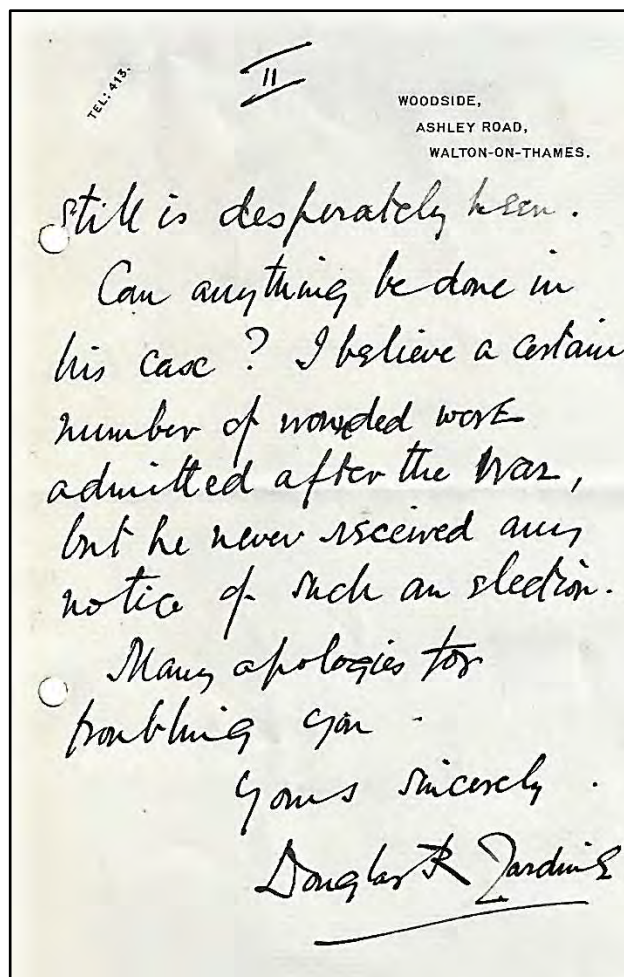 TEL: 413.
II
WOODSIDE,
ASHLEY ROAD,
WALTON-ON-THAMES.
still is desperately keen.
Can anything be done in
his case? I believe a certain
number of wounded were
admitted after the War,
but he never received any
notice of such an election.
Many apologies for
troubling you.
Yours sincerely.
Douglas R Jardine